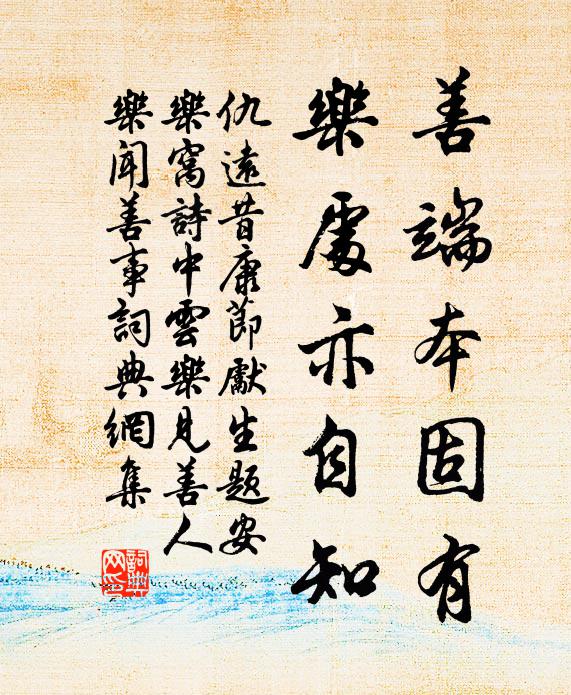 善端本固有
樂處亦自知
仇遠昔康節獻生題安
樂窩詩中雲樂見善人
樂聞善事詞典網集
詞典網印